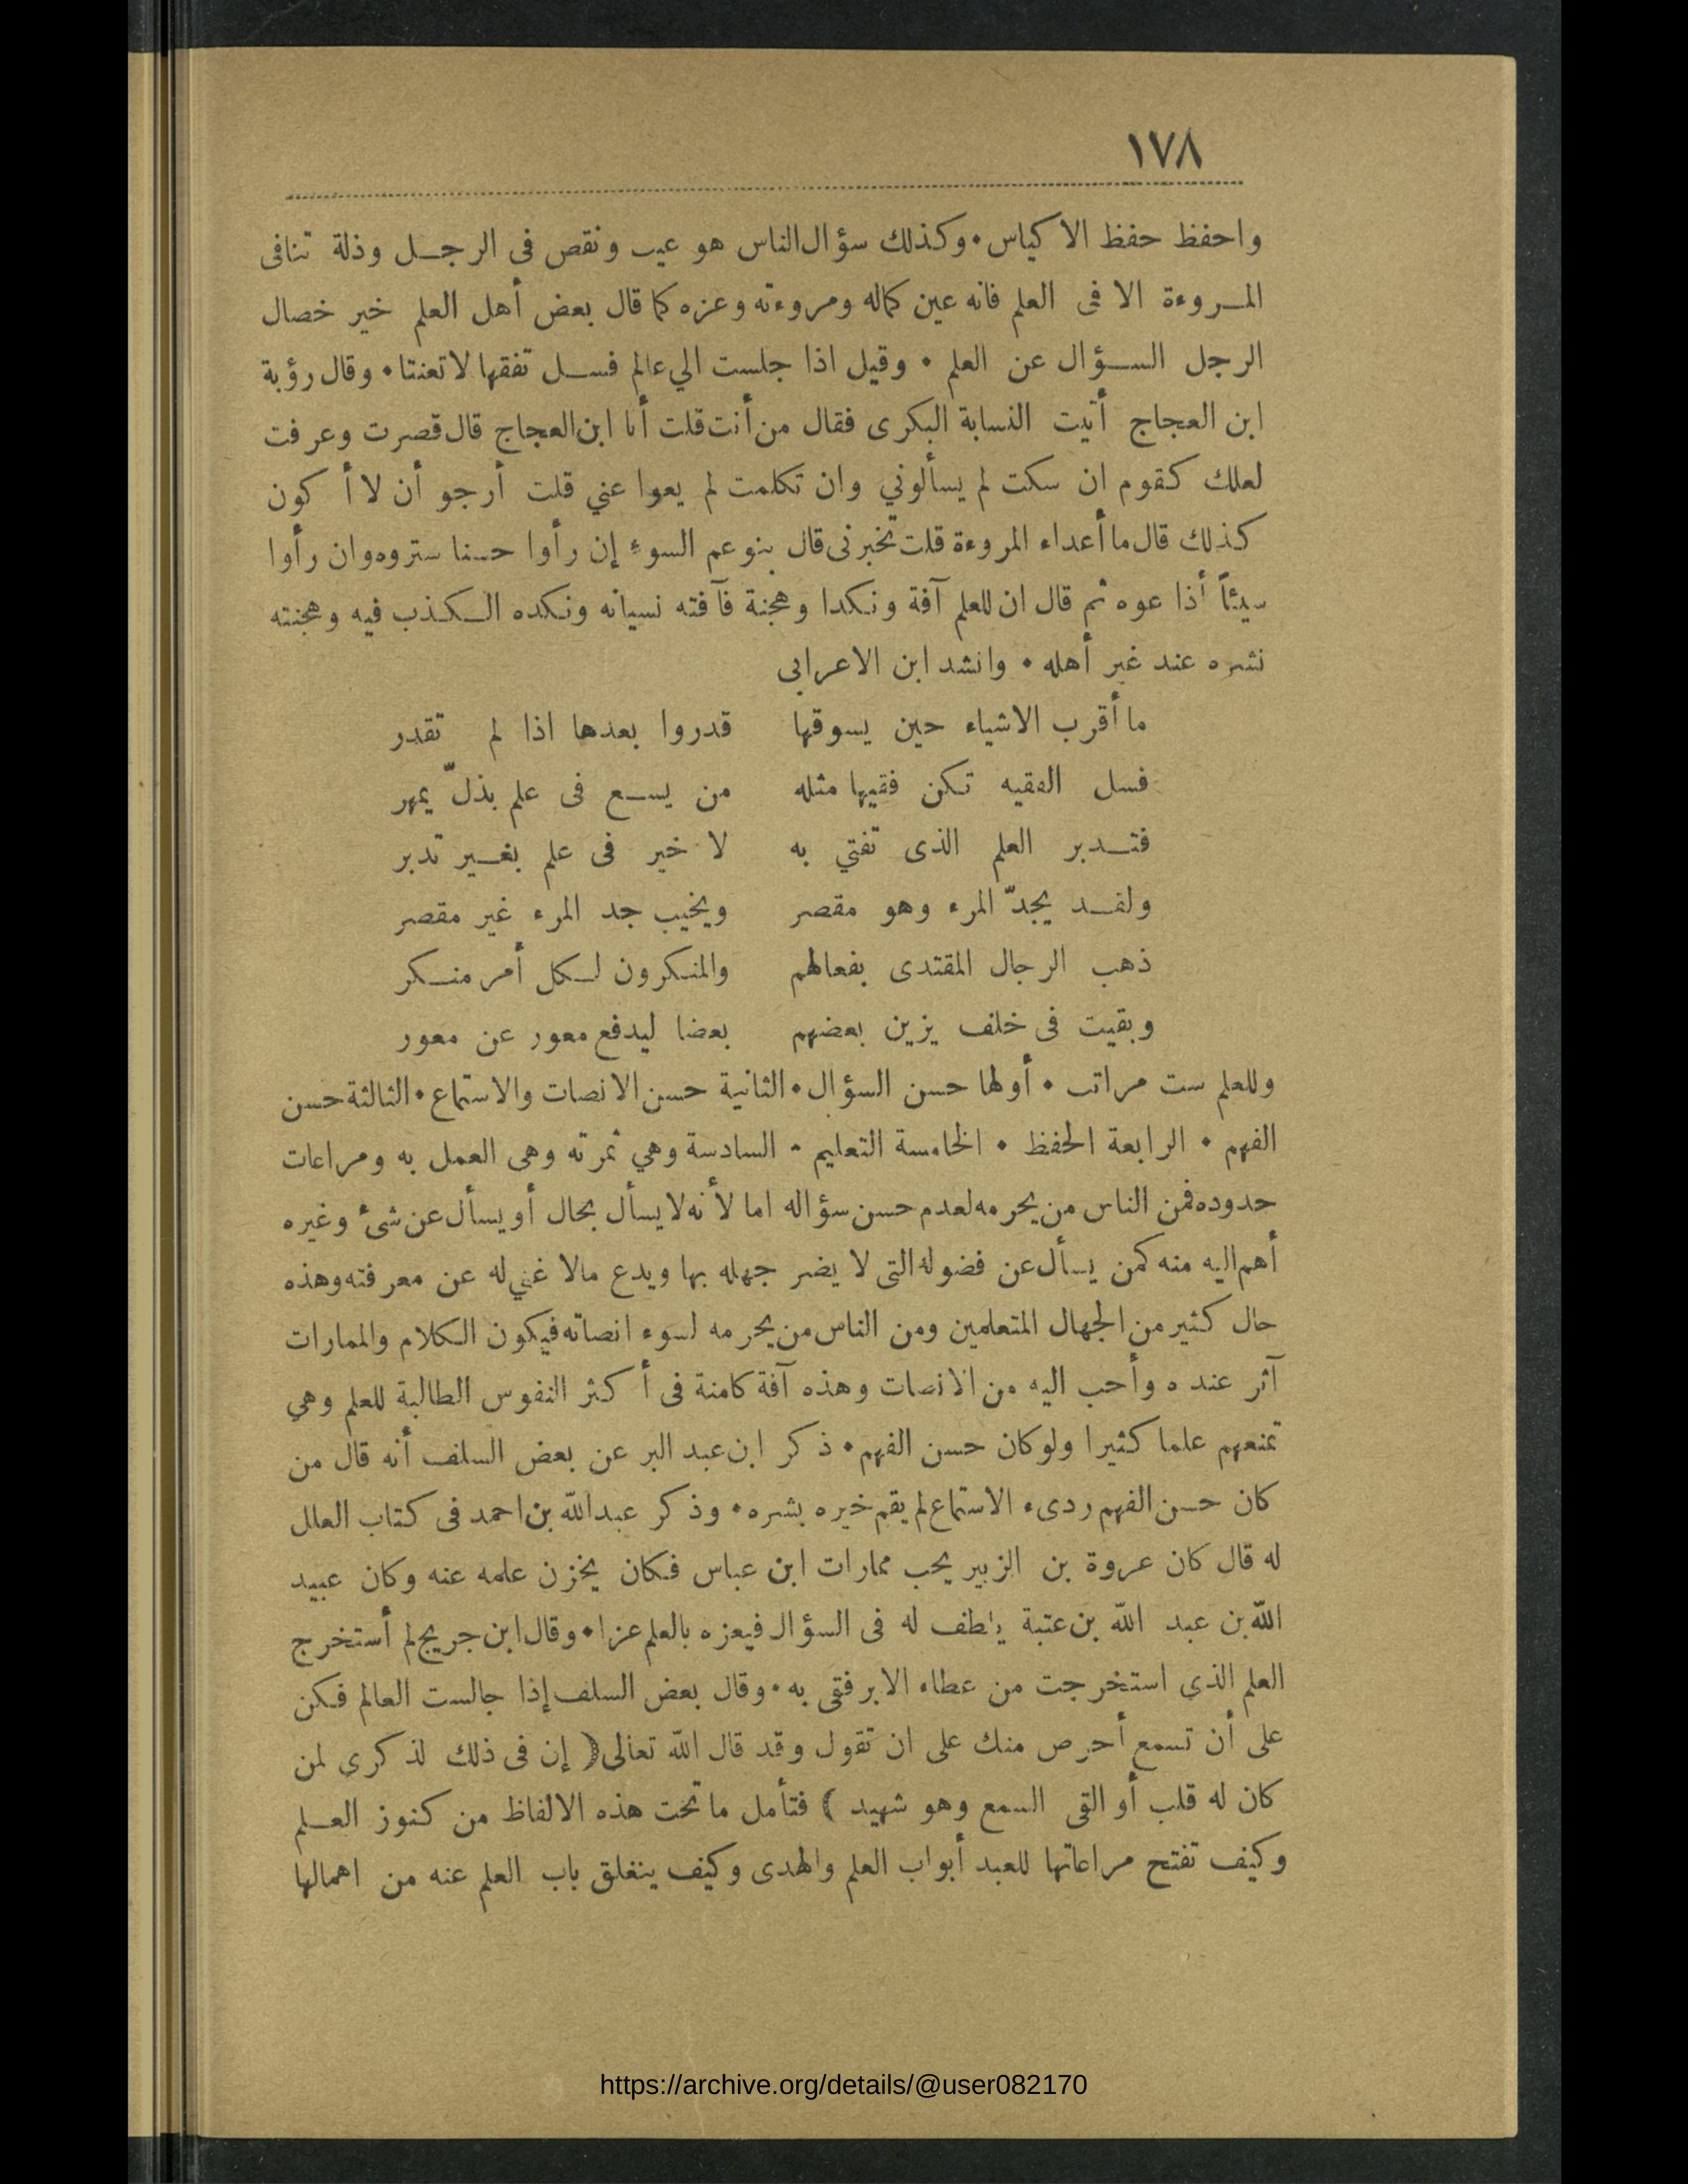 ١٧٨
واحفظ حفظ الاكياس • وكذلك سؤال الناس هو عيب ونقص فى الرجل وذلة تنافى
المروءة الا فى العلم فانه عين كماله ومروءته وعزه كما قال بعض أهل العلم خير خصال
الرجل السؤال عن العلم • وقيل اذا جلست الي عالم فسل تفقها لا تعنتا • وقال رؤبة
ابن العجاج أتيت النسابة البكرى فقال من أنت قلت أنا ابن العجاج قال قصرت وعرفت
لعلك كقوم ان سكت لم يسألوني وان تكلمت لم يعوا عني قلت أرجو أن لا أكون
كذلك قال ما أعداء المروءة قلت تخبرنى قال بنو عم السوء إن رأوا حسنا ستروه وان رأوا
سيئاً أذاعوه ثم قال ان للعلم آفة ونكدا وهجنة فآفته نسيانه ونكده الكذب فيه وهجنته
نشره عند غير أهله • وانشد ابن الاعرابى
ما أقرب الاشياء حين يسوقها قدروا بعدها اذا لم تقدر
فسل الفقيه تكن فقيها مثله من يسع فى علم بذلّ يمهر
فتدبر العلم الذى تفتي به لا خير فى علم بغير تدبر
ولقد يجدّ المرء وهو مقصر ويخيب جد المرء غير مقصر
ذهب الرجال المقتدى بفعالهم والمنكرون لكل أمر منكر
وبقيت فى خلف يزين بعضهم بعضا ليدفع معور عن معور
وللعلم ست مراتب • أولها حسن السؤال • الثانية حسن الانصات والاستماع • الثالثة حسن
الفهم • الرابعة الحفظ • الخامسة التعليم • السادسة وهي ثمرته وهى العمل به ومراعات
حدوده فمن الناس من يحرمه لعدم حسن سؤاله اما لأنه لا يسأل بحال أو يسأل عن شئ وغيره
أهم اليه منه كمن يسأل عن فضوله التى لا يضر جهله بها ويدع مالا غني له عن معرفته وهذه
حال كثير من الجهال المتعلمين ومن الناس من يحرمه لسوء انصاته فيكون الكلام والممارات
آثر عنده وأحب اليه من الانصات وهذه آفة كامنة فى أكثر النفوس الطالبة للعلم وهي
تمنعهم علما كثيرا ولو كان حسن الفهم • ذكر ابن عبد البر عن بعض السلف أنه قال من
كان حسن الفهم ردىء الاستماع لم يقم خيره بشره • وذكر عبد الله بن احمد فى كتاب العلل
له قال كان عروة بن الزبير يحب ممارات ابن عباس فكان يخزن علمه عنه وكان عبيد
الله بن عبد الله بن عتبة يلطف له فى السؤال فيعزه بالعلم عزا • وقال ابن جريج لم أستخرج
العلم الذي استخرجت من عطاء الا برفقى به • وقال بعض السلف إذا جالست العالم فكن
على أن تسمع أحرص منك على ان تقول وقد قال الله تعالى ( إن فى ذلك لذكرى لمن
كان له قلب أو القى السمع وهو شهيد ) فتأمل ما تحت هذه الالفاظ من كنوز العلم
وكيف تفتح مراعاتها للعبد أبواب العلم والهدى وكيف ينغلق باب العلم عنه من اهمالها
https://archive.org/details/@user082170